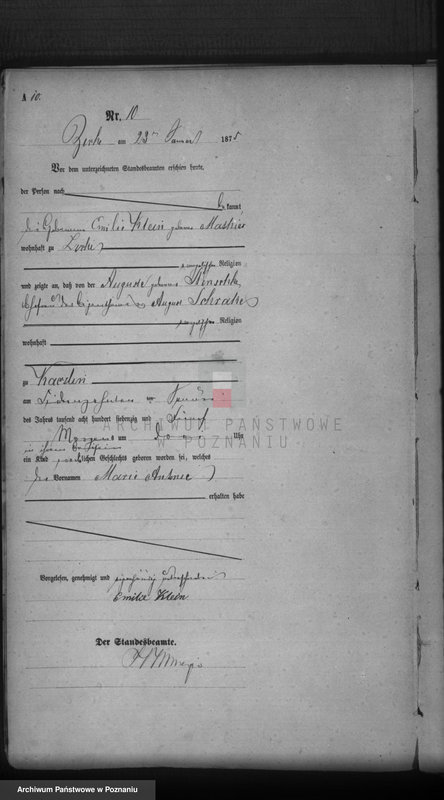 A 10.
Nr. 10
Zirke am 23ten Januar 1875
Vor dem unterzeichneten Standesbeamten erschien heute,
der Person nach
bekannt
die Hebamme Emilie Klein geborene
wohnhaft zu Zirke
evangelischer Religion
und zeigte an, daß von der Auguste geborene
Ehefrau des Eigenthümers August
evangelischer Religion
wohnhaft
zu
am siebenzehnten ten Januar
des Jahres tausend acht hundert siebenzig und fünf
Morgens um Uhr
in ihrem
ein Kind weiblichen Geschlechts geboren worden sei, welches
die Vornamen Marie
erhalten habe
Vorgelesen, genehmigt und eigenhändig unterschrieben
Emilie Klein
Der Standesbeamte.
ARCHIWUM PAŃSTWOWE
W POZNANIU
Archiwum Państwowe w Poznaniu